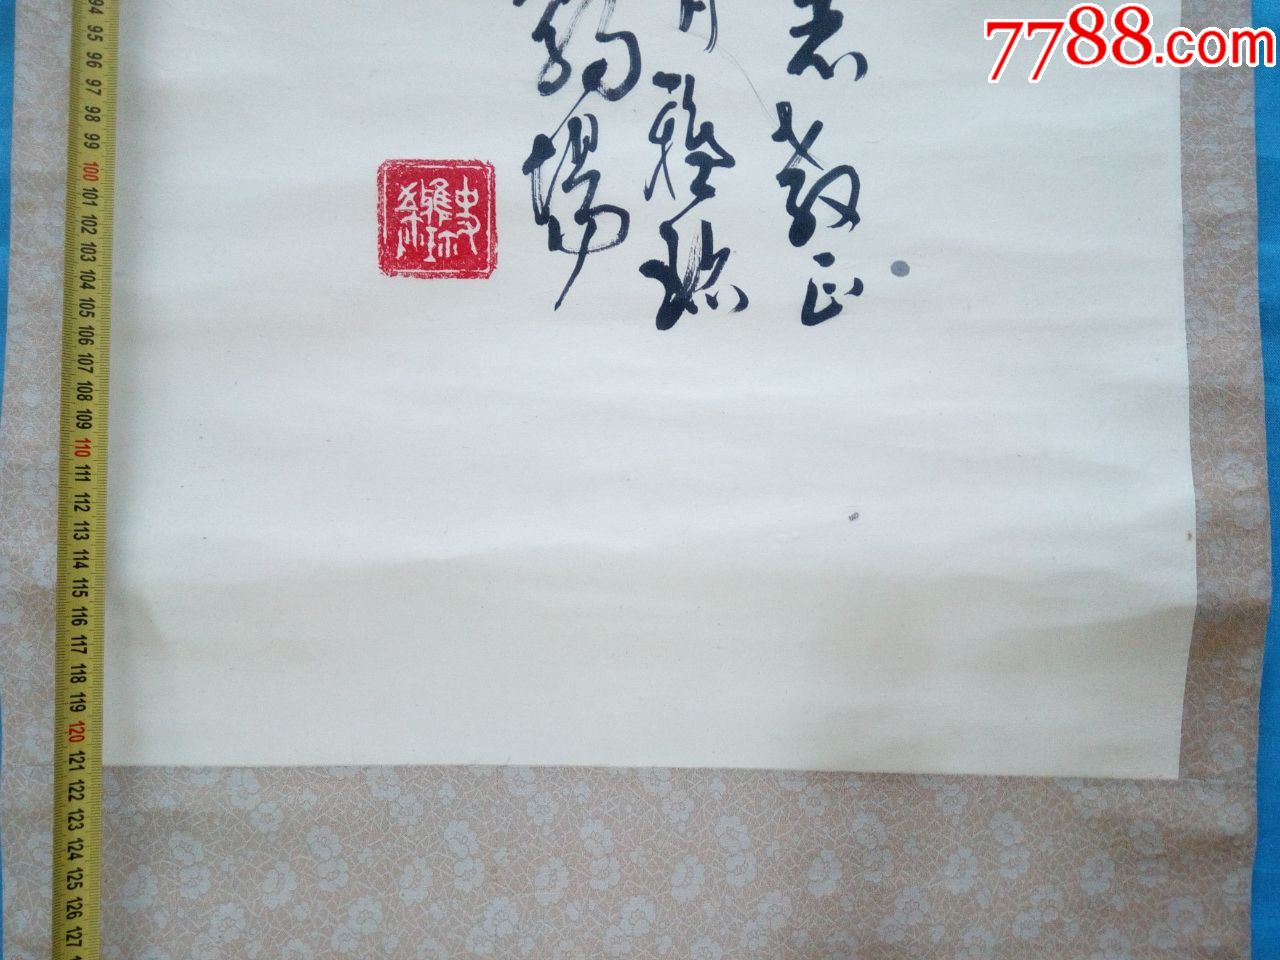 7788.com
志教正
月雅
場
94
95
96
97
98
99
100
101
102
103
104
105
106
107
108
109
110
111
112
113
114
115
116
117
118
119
120
121
122
123
124
125
126
127